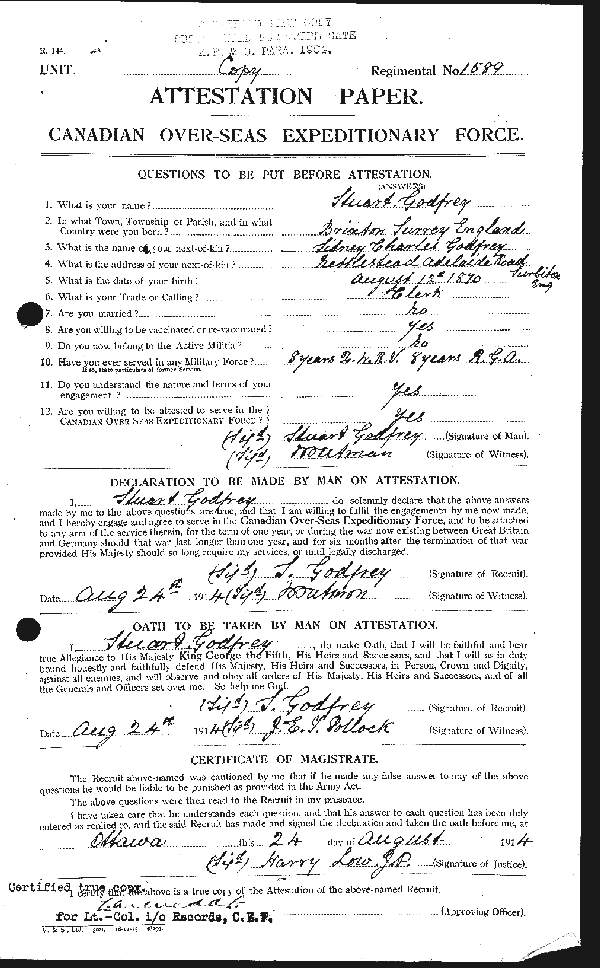 COPY
DATE
PARA. 1902.
UNIT. Copy Regimental No. 1589
ATTESTATION PAPER.
CANADIAN OVER-SEAS EXPEDITIONARY FORCE.
QUESTIONS TO BE PUT BEFORE ATTESTATION.
(ANSWERS)
1. What is your name? Stuart Godfrey
2. In what Town, Township or Parish, and in what
Country were you born? Brixton Surrey England
3. What is the name of your next-of-kin? Sidney Charles Godfrey
4. What is the address of your next-of-kin? Nettlestead Adelaide Road Surbiton Eng
5. What is the date of your birth? August 12th 1870
6. What is your Trade or Calling? Clerk
7. Are you married? no
8. Are you willing to be vaccinated or re-vaccinated? Yes
9. Do you now belong to the Active Militia? no
10. Have you ever served in any Military Force? 8 years 8 years R.G.A.
If so, state particulars of former Service.
11. Do you understand the nature and terms of your
engagement? Yes
12. Are you willing to be attested to serve in the
CANADIAN OVER-SEAS EXPEDITIONARY FORCE? Yes
(Sgd) Stuart Godfrey (Signature of Man).
(Sgd) (Signature of Witness).
DECLARATION TO BE MADE BY MAN ON ATTESTATION.
I, Stuart Godfrey do solemnly declare that the above answers
made by me to the above questions are true, and that I am willing to fulfil the engagements by me now made,
and I hereby engage and agree to serve in the Canadian Over-Seas Expeditionary Force, and to be attached
to any arm of the service therein, for the term of one year, or during the war now existing between Great Britain
and Germany should that war last longer than one year, and for six months after the termination of that war
provided His Majesty should so long require my services, or until legally discharged.
(Sgd) S. Godfrey (Signature of Recruit).
Date Aug 24th 1914 (Sgd) (Signature of Witness).
OATH TO BE TAKEN BY MAN ON ATTESTATION.
I, Stuart Godfrey, do make Oath, that I will be faithful and bear
true Allegiance to His Majesty King George the Fifth, His Heirs and Successors, and that I will as in duty
bound honestly and faithfully defend His Majesty, His Heirs and Successors, in Person, Crown and Dignity,
against all enemies, and will observe and obey all orders of His Majesty, His Heirs and Successors, and of all
the Generals and Officers set over me. So help me God.
(Sgd) S. Godfrey (Signature of Recruit)
Date Aug 24th 1914 (Sgd) J.E.S. Pollock (Signature of Witness).
CERTIFICATE OF MAGISTRATE.
The Recruit above-named was cautioned by me that if he made any false answer to any of the above
questions he would be liable to be punished as provided in the Army Act.
The above questions were then read to the Recruit in my presence.
I have taken care that he understands each question, and that his answer to each question has been duly
entered as replied to, and the said Recruit has made and signed the declaration and taken the oath before me, at
Ottawa this 24 day of August 1914
(Sgd) Harry Low J.P. (Signature of Justice).
Certified true copy.
I certify that the above is a true copy of the Attestation of the above-named Recruit.
for Lt.-Col. i/c Records, C.E.F. (Approving Officer).